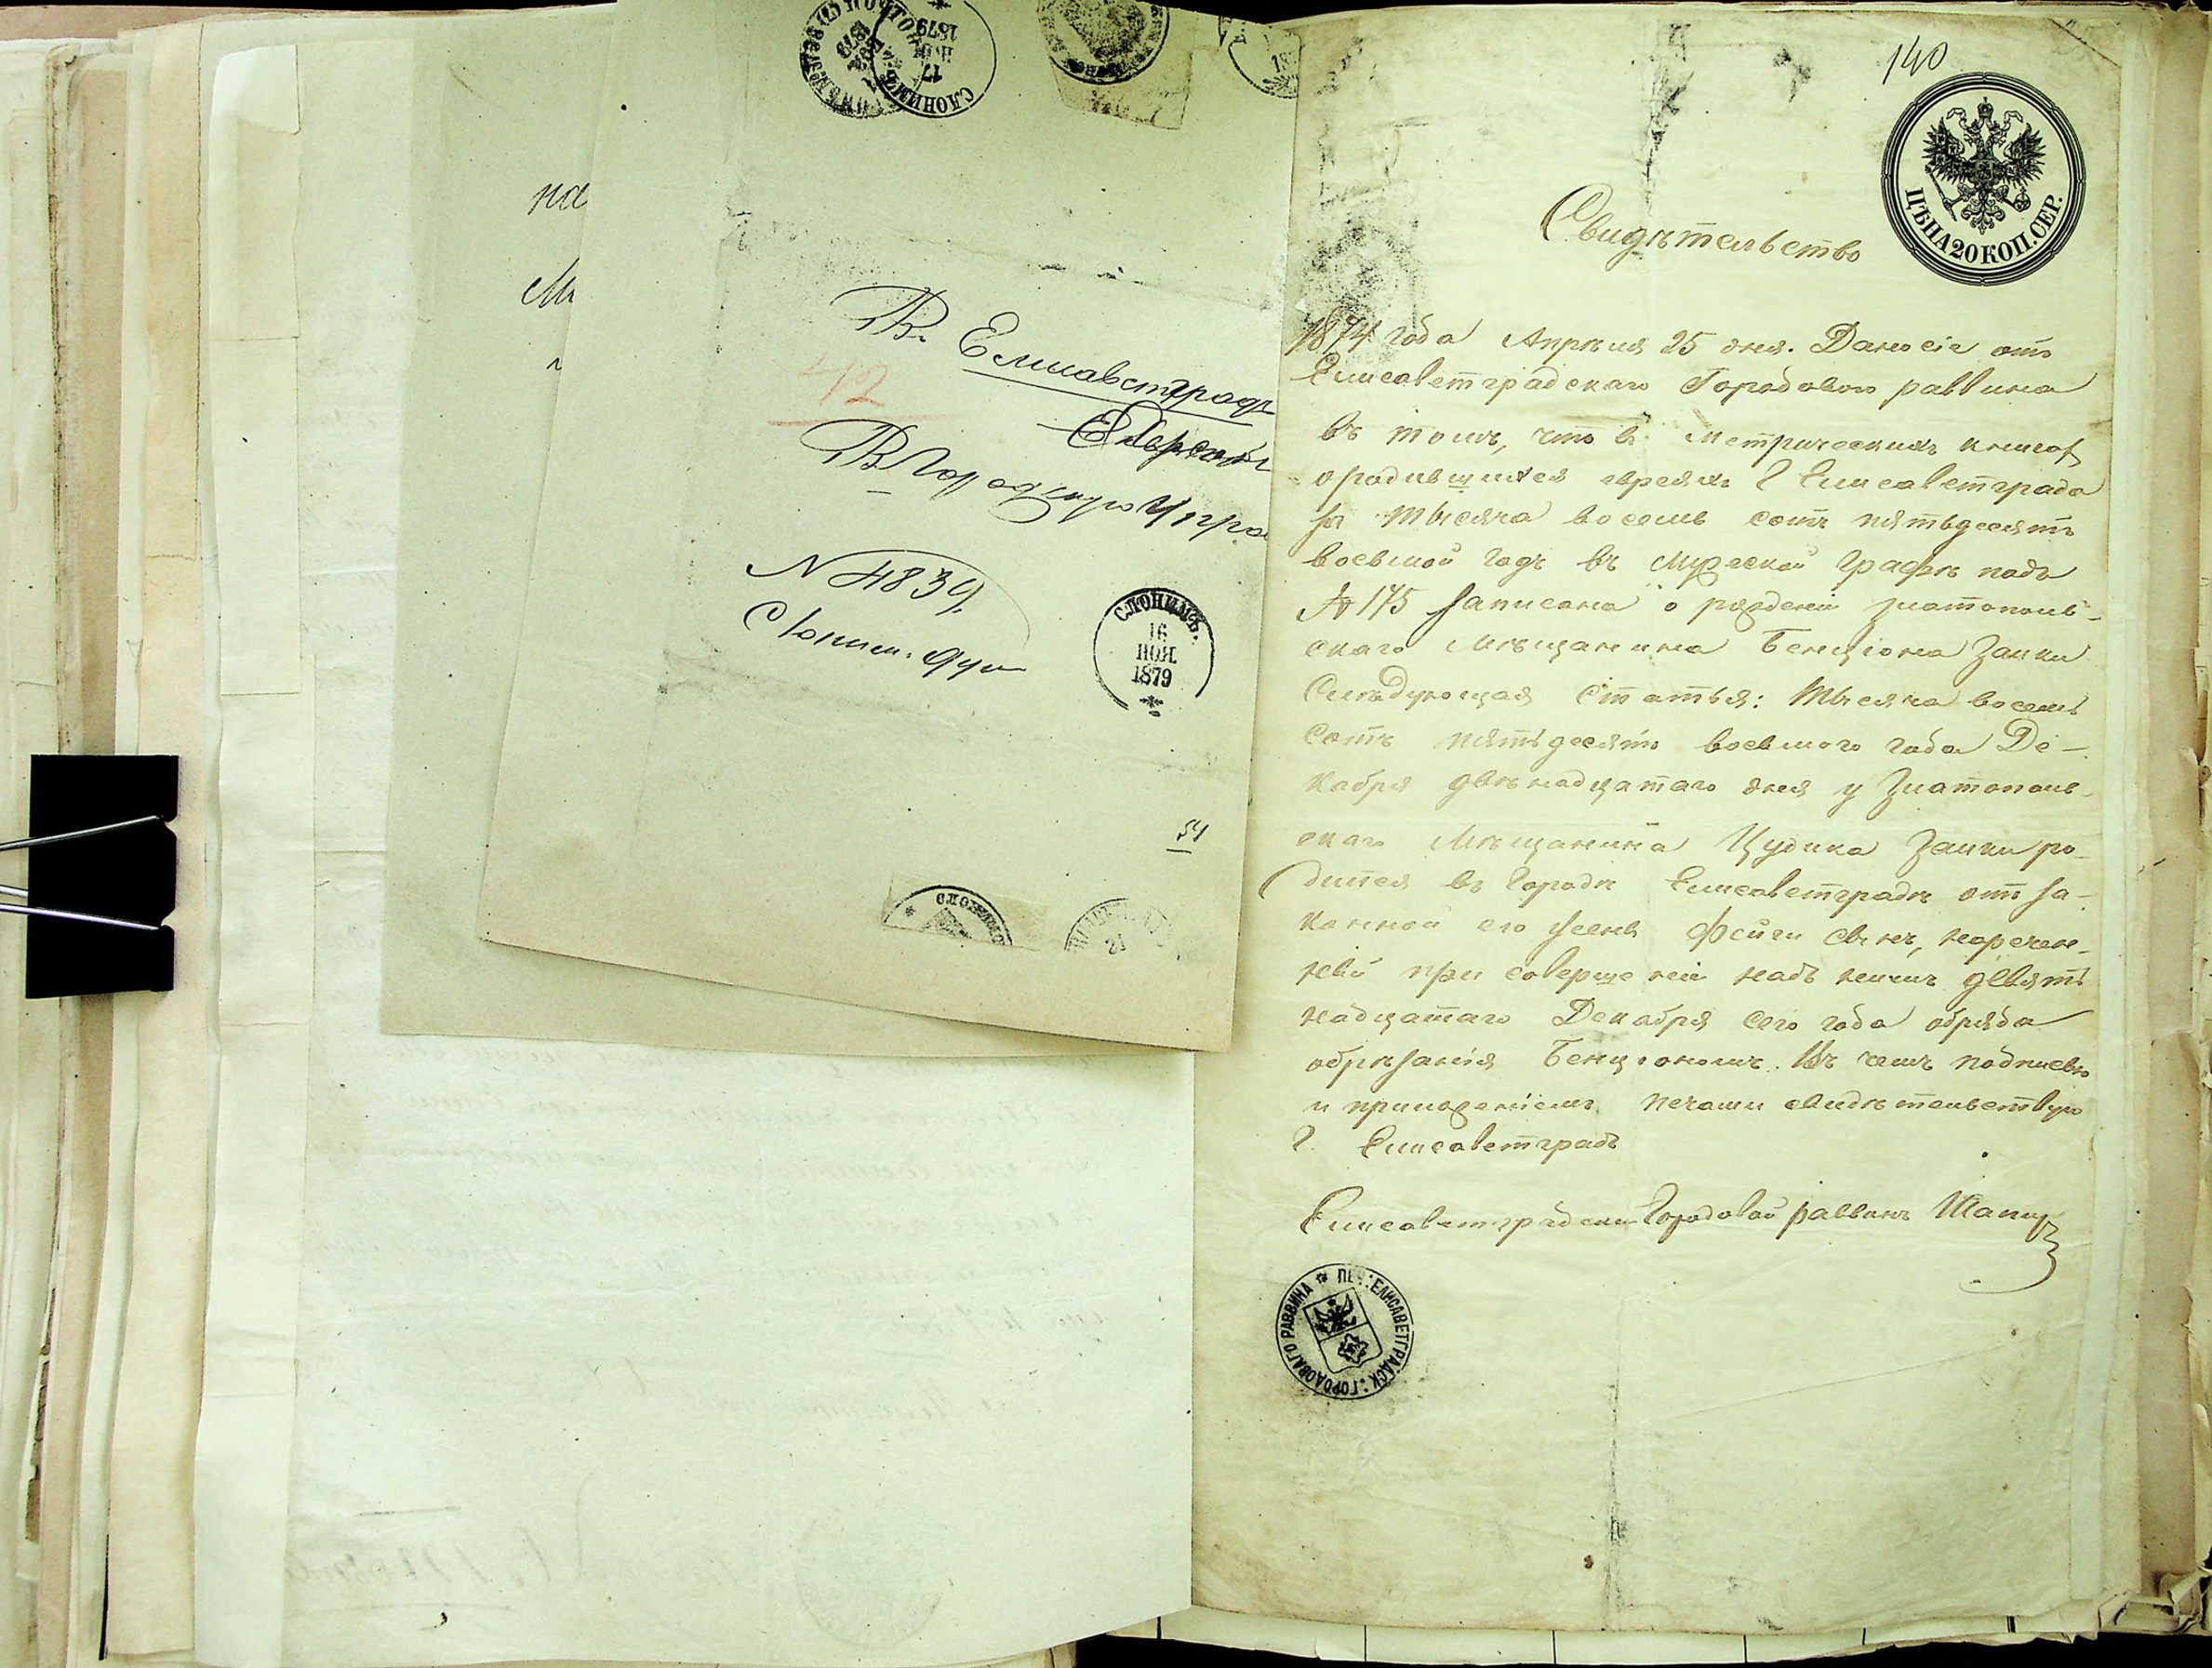 на
СЛОНИМЪ
17
НОЯ
1879
В. Елисаветградъ
42
В Городскую Упра
N 4839.
Слоним.
СЛОНИМЪ.
16
НОЯ.
1879
54
21
140
ЦѢНА 20 КОП. СЕР.
Свидѣтельство
1874 года Апрѣля 25 дня. Дано сіе отъ
Елисаветградскаго Городового раввина
въ томъ, что въ метрическихъ книгах
о родившихся евреяхъ г Елисаветграда
за тысяча восемь сотъ пятьдесятъ
восьмой годъ въ мужской графѣ подъ
№ 175 записана о рожденіи златополь-
скаго мѣщанина Бенціона Заики
Слѣдующая статья: тысяча восемь
сотъ пятьдесятъ восьмого года Де-
кабря двѣнадцатаго дня у Златополь-
скаго Мѣщанина Цудика Заики ро-
дился въ Городѣ Елисаветградѣ отъ за-
конной его жены Фейги сынъ, наречен-
ный при совершеніи надъ нимъ девят-
надцатаго Декабря сего года обряда
обрѣзанія Бенціономъ. Въ чемъ подписью
и приложеніемъ печати свидѣтельствую
г. Елисаветградъ
Елисаветградскій Городовой раввинъ Шапир
ПЕЧ: ЕЛИСАВЕТГРАДСК: ГОРОДОВАГО РАВВИНА